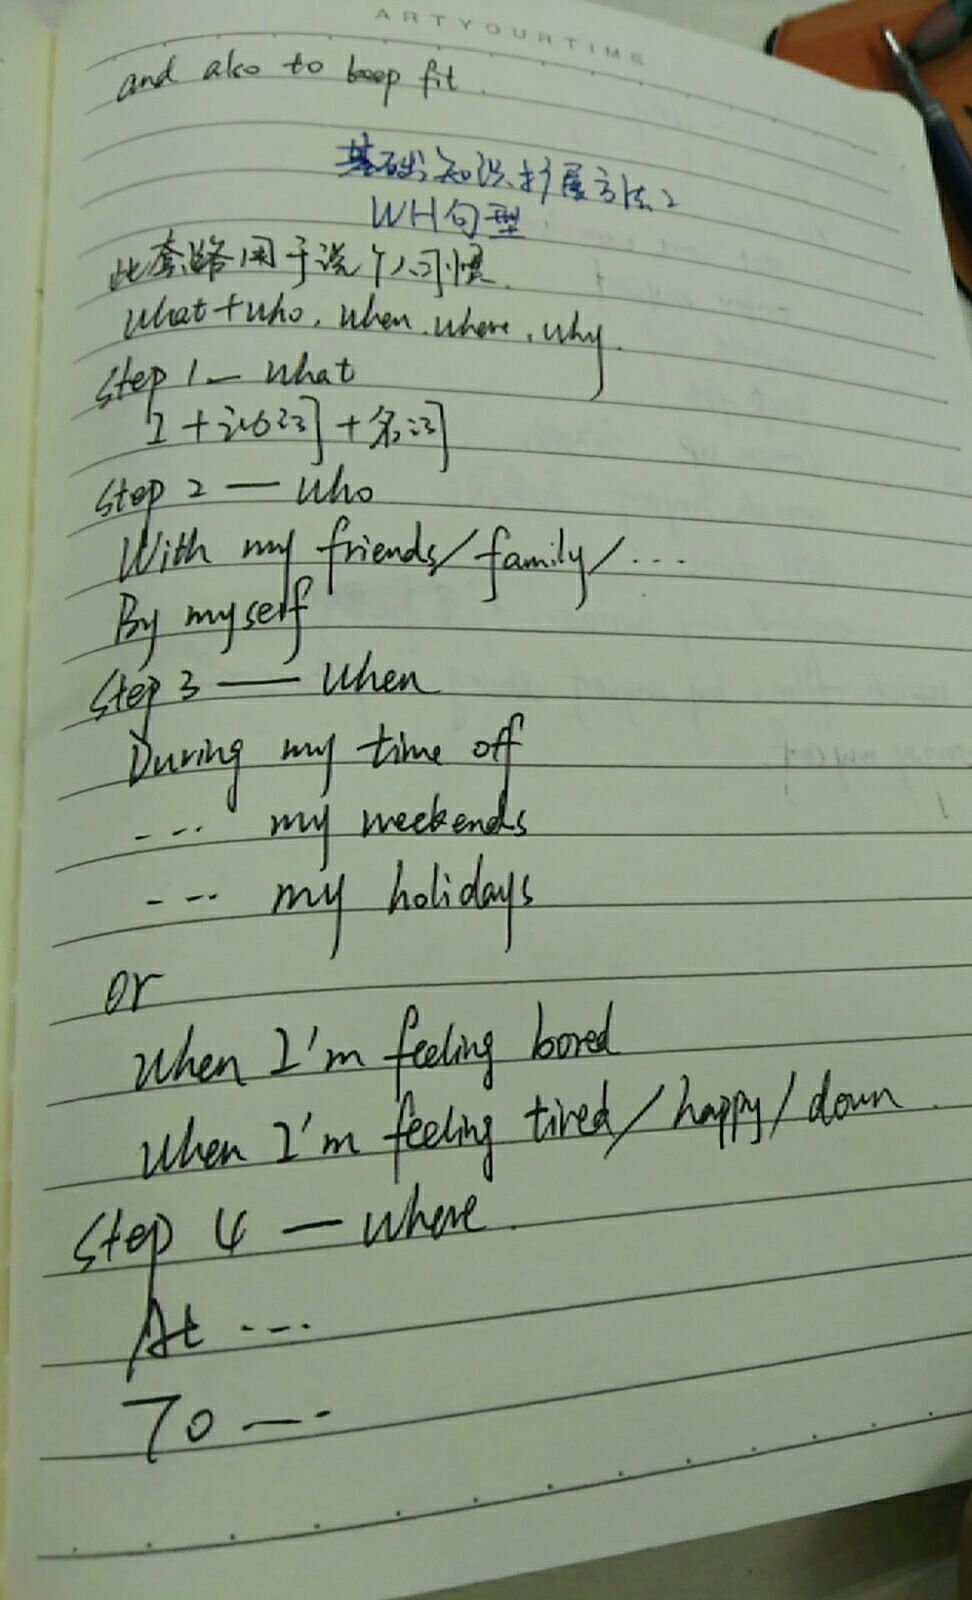 ARTYOURTIME
and also to keep fit.
基础知识扩展方法2
WH句型
此套路用于说个人习惯.
what+who, when, where, why.
Step 1 — what
I + 动词 + 名词
Step 2 — who
With my friends/family/...
By myself
Step 3 — when
During my time off
... my weekends
... my holidays
or
when I'm feeling bored
when I'm feeling tired/happy/down.
Step 4 — where.
At ...
To ...